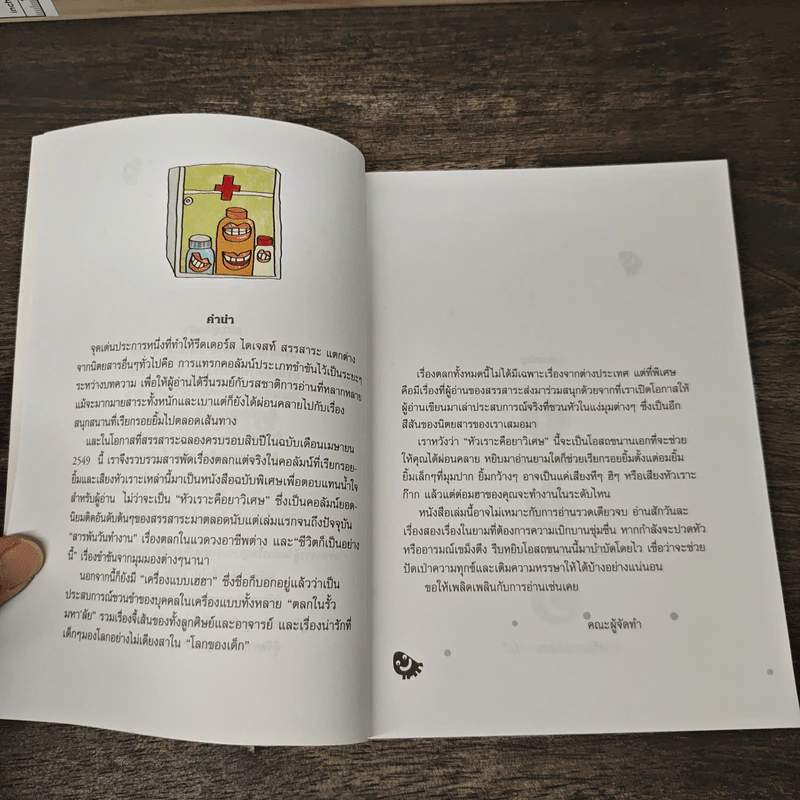 คำนำ
จุดเด่นประการหนึ่งที่ทำให้รีดเดอร์ส ไดเจสท์ สรรสาระ แตกต่าง
จากนิตยสารอื่นๆทั่วไปคือ การแทรกคอลัมน์ประเภทขำขันไว้เป็นระยะๆ
ระหว่างบทความ เพื่อให้ผู้อ่านได้รื่นรมย์กับรสชาติการอ่านที่หลากหลาย
แม้จะมากมายสาระทั้งหนักและเบาแต่ก็ยังได้ผ่อนคลายไปกับเรื่อง
สนุกสนานที่เรียกรอยยิ้มไปตลอดเส้นทาง
และในโอกาสที่สรรสาระฉลองครบรอบสิบปีในฉบับเดือนเมษายน
2549 นี้ เราจึงรวบรวมสารพัดเรื่องตลกแต่จริงในคอลัมน์ที่เรียกรอย-
ยิ้มและเสียงหัวเราะเหล่านี้มาเป็นหนังสือฉบับพิเศษเพื่อตอบแทนน้ำใจ
สำหรับผู้อ่าน ไม่ว่าจะเป็น “หัวเราะคือยาวิเศษ” ซึ่งเป็นคอลัมน์ยอด-
นิยมติดอันดับต้นๆของสรรสาระมาตลอดนับแต่เล่มแรกจนถึงปัจจุบัน
“สารพันวันทำงาน” เรื่องตลกในแวดวงอาชีพต่าง และ“ชีวิตก็เป็นอย่าง
นี้” เรื่องขำขันจากมุมมองต่างๆนานา
นอกจากนี้ก็ยังมี “เครื่องแบบเฮฮา” ซึ่งชื่อก็บอกอยู่แล้วว่าเป็น
ประสบการณ์ชวนขำของบุคคลในเครื่องแบบทั้งหลาย “ตลกในรั้ว
มหา’ลัย” รวมเรื่องจี้เส้นของทั้งลูกศิษย์และอาจารย์ และเรื่องน่ารักที่
เด็กๆมองโลกอย่างไม่เดียงสาใน “โลกของเด็ก”
เรื่องตลกทั้งหมดนี้ไม่ได้มีเฉพาะเรื่องจากต่างประเทศ แต่ที่พิเศษ
คือมีเรื่องที่ผู้อ่านของสรรสาระส่งมาร่วมสนุกด้วยจากที่เราเปิดโอกาสให้
ผู้อ่านเขียนมาเล่าประสบการณ์จริงที่ชวนหัวในแง่มุมต่างๆ ซึ่งเป็นอีก
สีสันของนิตยสารของเราเสมอมา
เราหวังว่า “หัวเราะคือยาวิเศษ” นี้จะเป็นโอสถขนานเอกที่จะช่วย
ให้คุณได้ผ่อนคลาย หยิบมาอ่านยามใดก็ช่วยเรียกรอยยิ้มตั้งแต่อมยิ้ม
ยิ้มเล็กๆที่มุมปาก ยิ้มกว้างๆ อาจเป็นแค่เสียงหึๆ ฮิๆ หรือเสียงหัวเราะ
ก๊าก แล้วแต่ต่อมฮาของคุณจะทำงานในระดับไหน
หนังสือเล่มนี้อาจไม่เหมาะกับการอ่านรวดเดียวจบ อ่านสักวันละ
เรื่องสองเรื่องในยามที่ต้องการความเบิกบานชุ่มชื่น หากกำลังจะปวดหัว
หรืออารมณ์เขม็งตึง รีบหยิบโอสถขนานนี้มาบำบัดโดยไว เชื่อว่าจะช่วย
ปัดเป่าความทุกข์และเติมความหรรษาให้ได้บ้างอย่างแน่นอน
ขอให้เพลิดเพลินกับการอ่านเช่นเคย
คณะผู้จัดทำ